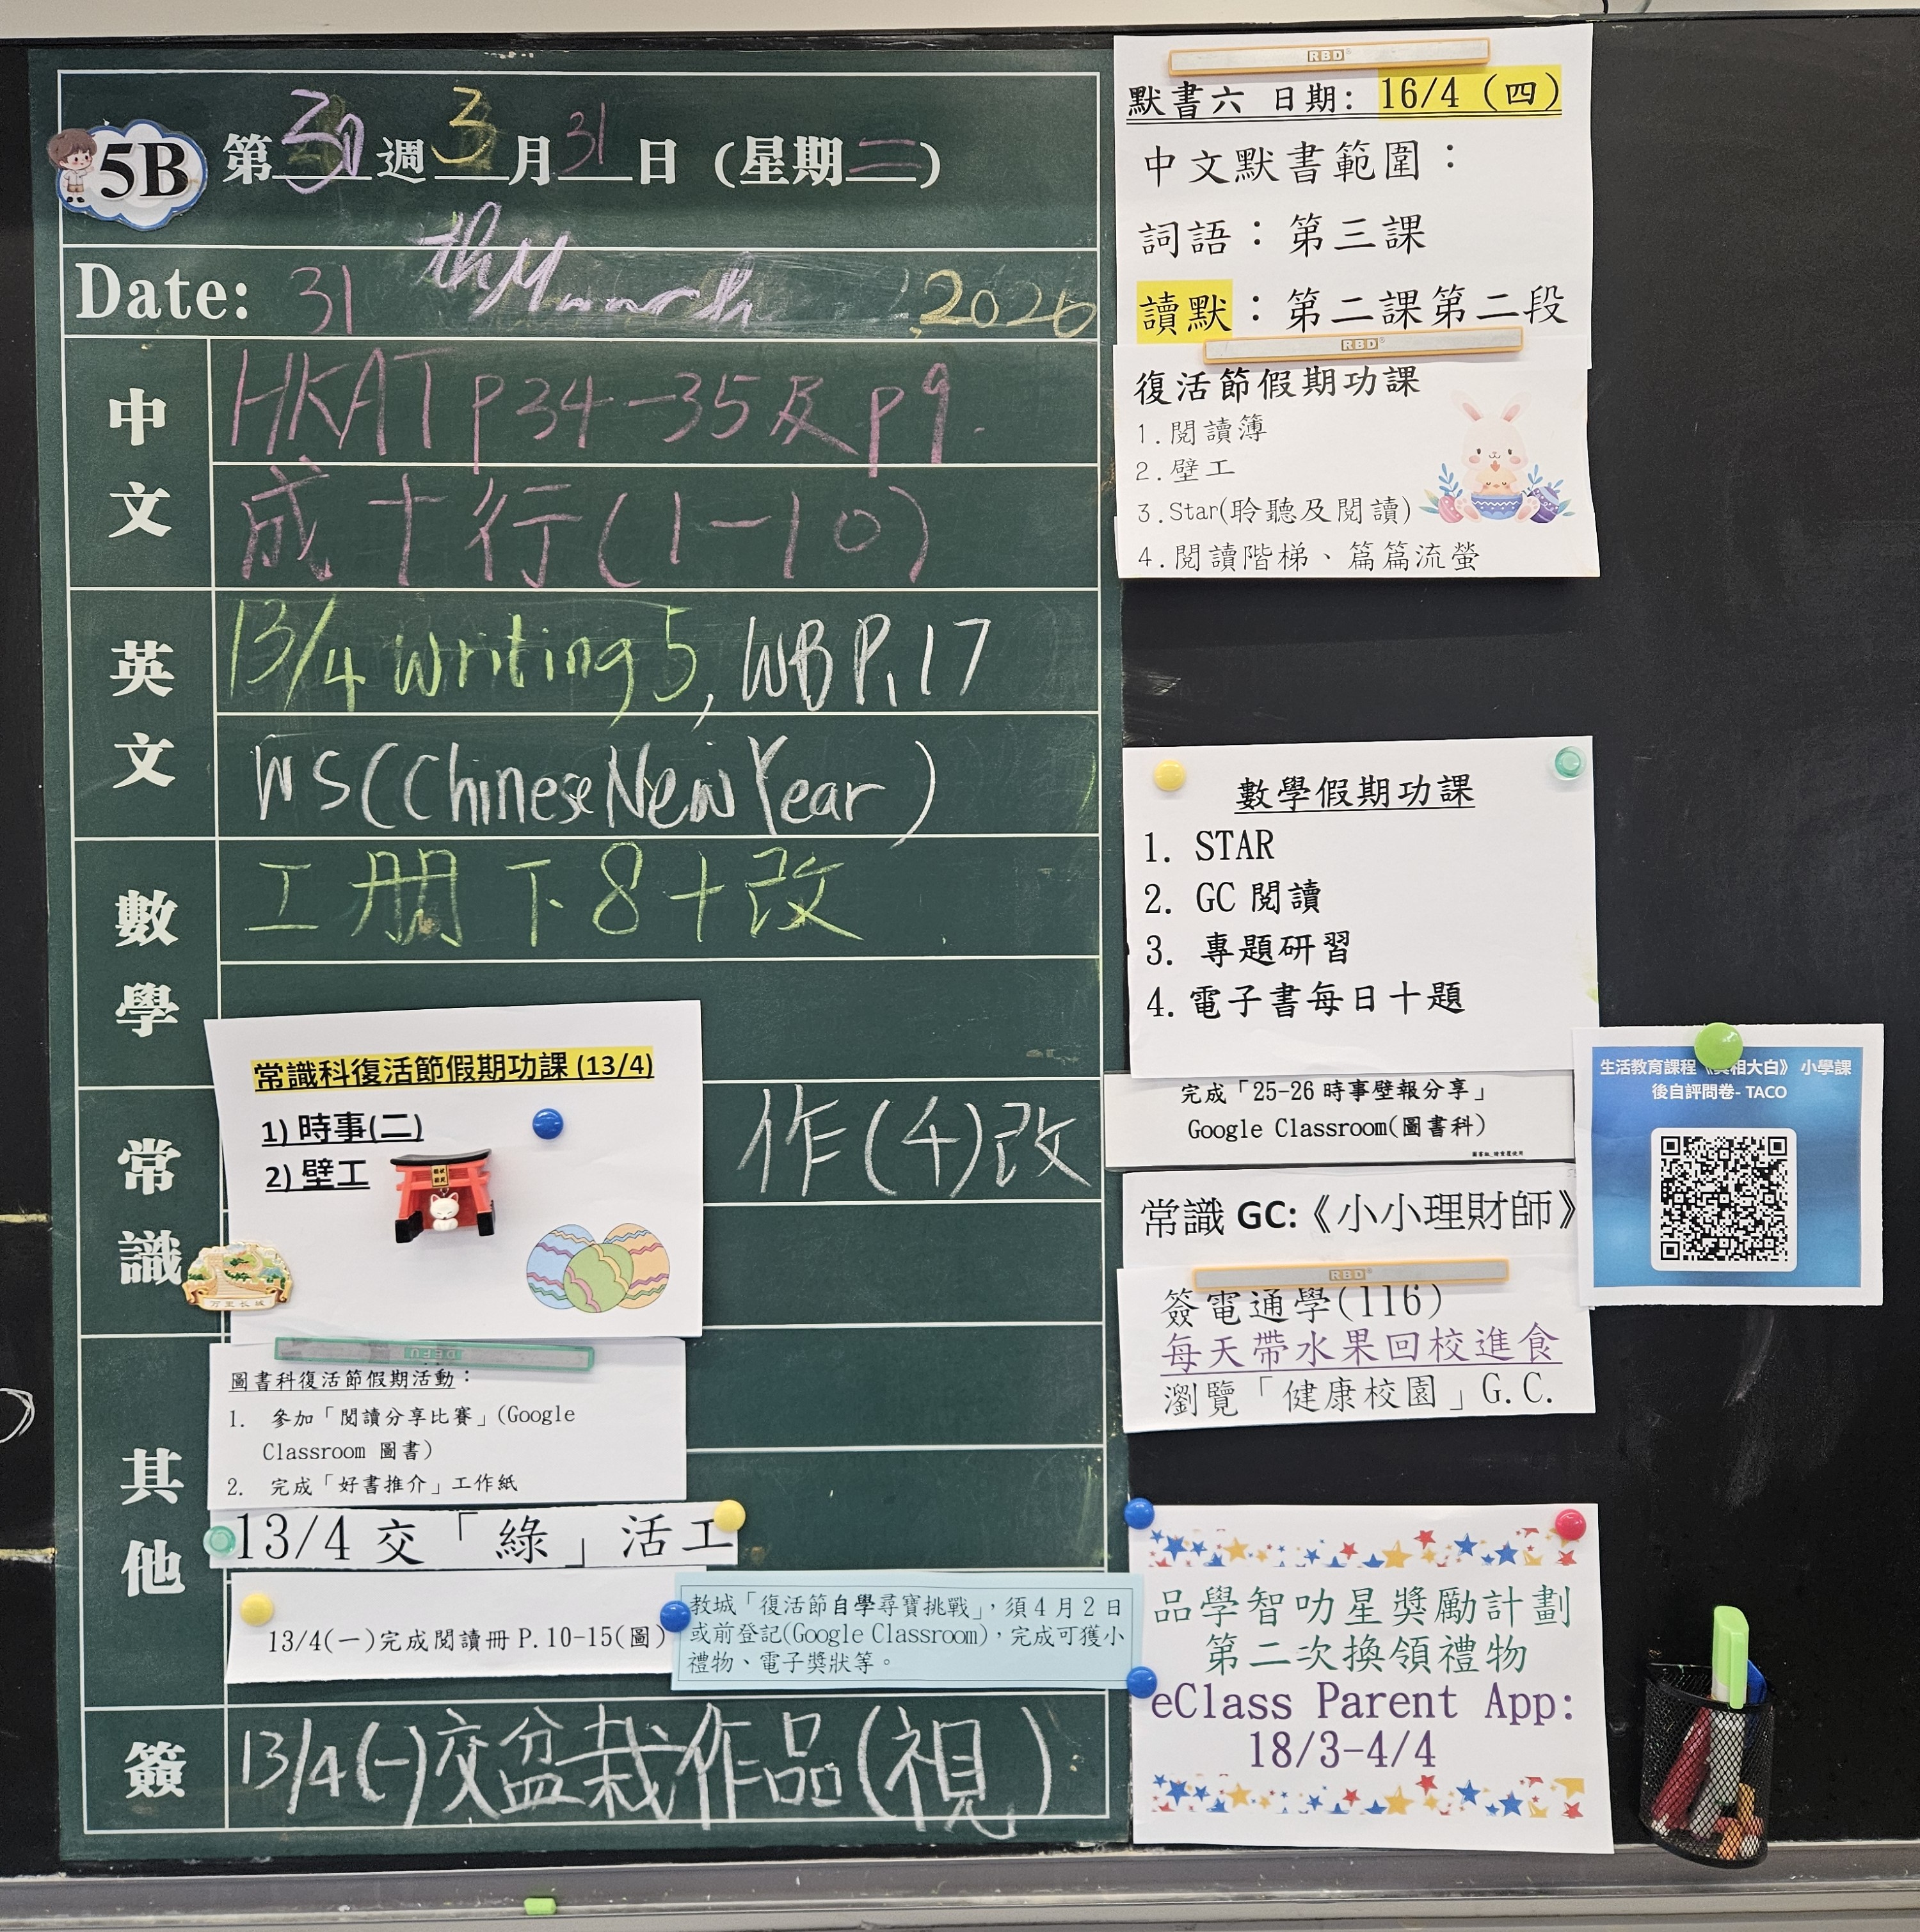 5B 第30週3月31日 (星期二)
Date: 31 th March ,2026
中文
HKAT p34-35及p9.
成十行(1-10)
英文
13/4 Writing5, WB P.17
WS(Chinese New Year)
數學
工冊下8+改
常識
作(4)改
常識科復活節假期功課 (13/4)
1) 時事(二)
2) 壁工
万里长城
其他
圖書科復活節假期活動：
1. 參加「閱讀分享比賽」(Google
Classroom 圖書)
2. 完成「好書推介」工作紙
13/4 交「綠」活工
13/4(一)完成閱讀冊 P.10-15(圖)
教城「復活節自學尋寶挑戰」，須 4 月 2 日
或前登記(Google Classroom)，完成可獲小
禮物、電子獎狀等。
簽
13/4(一)交盆栽作品(視)
RBD
默書六 日期: 16/4 (四)
中文默書範圍：
詞語：第三課
讀默：第二課第二段
RBD
復活節假期功課
1.閱讀簿
2.壁工
3.Star(聆聽及閱讀)
4.閱讀階梯、篇篇流螢
數學假期功課
1. STAR
2. GC 閱讀
3. 專題研習
4. 電子書每日十題
完成「25-26 時事壁報分享」
Google Classroom(圖書科)
常識 GC:《小小理財師》
RBD
簽電通學(116)
每天帶水果回校進食
瀏覽「健康校園」G.C.
生活教育課程《真相大白》 小學課
後自評問卷- TACO
品學智叻星獎勵計劃
第二次換領禮物
eClass Parent App:
18/3-4/4